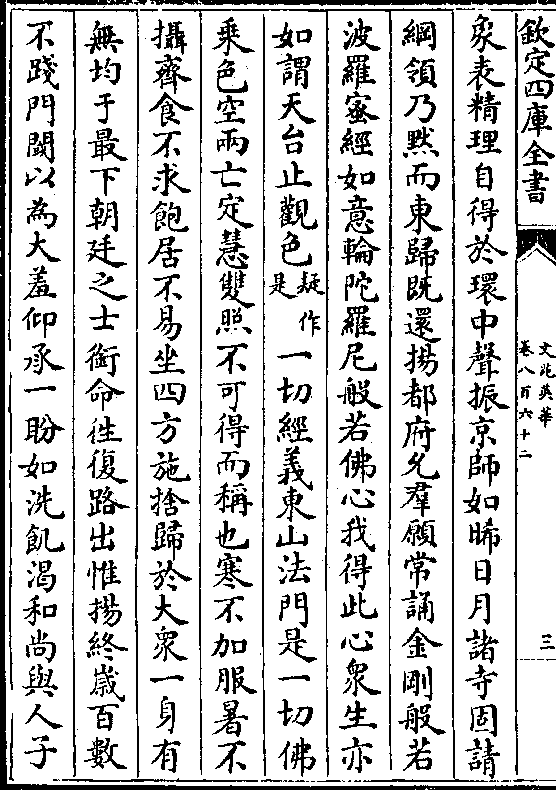 欽定四庫全書
文苑英華
卷八百六十二
三
象表精理自得於環中聲振京師如晞日月諸寺固請
綱領乃黙而東歸既還揚都府允羣願常誦金剛般若
波羅宻經如意輪陀羅尼般若佛心我得此心衆生亦
如謂天台止觀色疑作是一切經義東山法門是一切佛
乘色空兩亡定慧雙照不可得而稱也寒不加服暑不
攝齊食不求飽居不易坐四方施捨歸於大衆一身有
無均于最下朝廷之士銜命往復路出惟揚終歲百數
不踐門閾以為大羞仰承一盼如洗飢渴和尚與人子